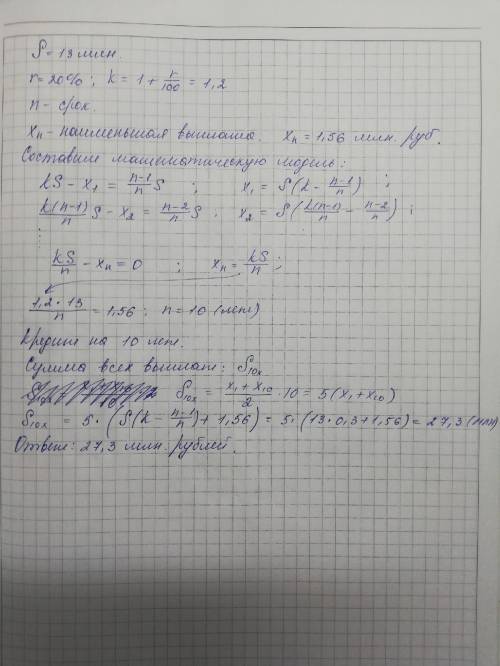 S = 13 млн.
r = 20% ; k = 1 + r/100 = 1,2
n - срок.
xₙ - наименьшая выплата. xₙ = 1,56 млн. руб.
Составим математическую модель:
kS - x₁ = (n-1)/n S ; x₁ = S(k - (n-1)/n) ;
k(n-1)/n S - x₂ = (n-2)/n S ; x₂ = S(k(n-1)/n - (n-2)/n) ;
⋮
kS/n - xₙ = 0 ; xₙ = kS/n ;
1,2 · 13/n = 1,56 ; n = 10 (лет)
Кредит на 10 лет.
Сумма всех выплат: S₁₀ₓ
S₁₀ₓ = (x₁ + x₁₀)/2 · 10 = 5(x₁ + x₁₀)
S₁₀ₓ = 5 · (S(k - (n-1)/n) + 1,56) = 5 · (13 · 0,3 + 1,56) = 27,3 (млн)
Ответ: 27,3 млн. рублей.